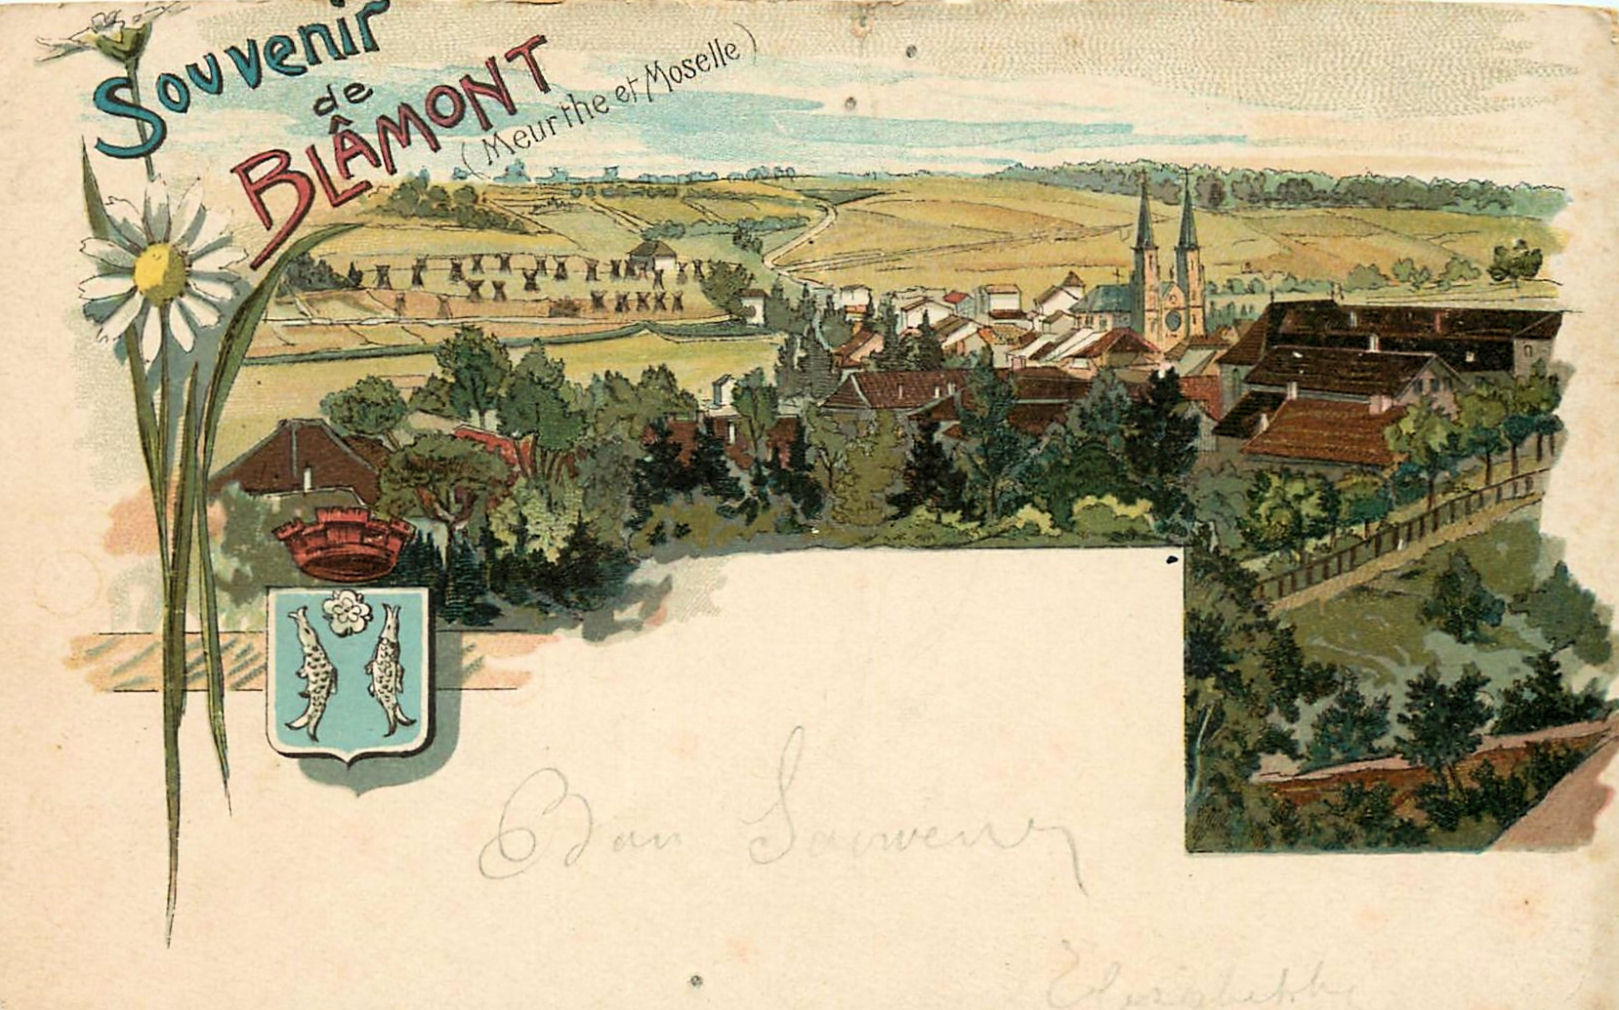 Souvenir
de
BLÂMONT
(Meurthe et Moselle)
Bon Souvenir